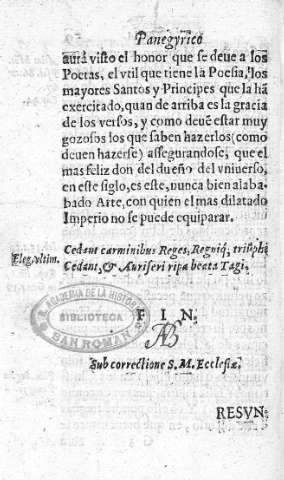 Panegyrico
aurà visto el honor que se deue a los
Poetas, el vtil que tiene la Poesia, los
mayores Santos y Principes que la hã
exercitado, quan de arriba es la gracia
de los versos, y como deuẽ estar muy
gozosos los que saben hazerlos (como
deuen hazerse) assegurandose, que el
mas feliz don del dueño del vniuerso,
en este siglo, es este, nunca bien alaba-
bado Arte, con quien el mas dilatado
Imperio no se puede equiparar.
Eleg. vltim.
Cedant carminibus Reges, Regniq, triũphi
Cedant, & Auriferi ripa beata Tagi.
ACADEMIA DE LA HISTORIA
BIBLIOTECA
SAN ROMAN
F I N.
Sub correctione S. M. Ecclesiæ.
RESVN-